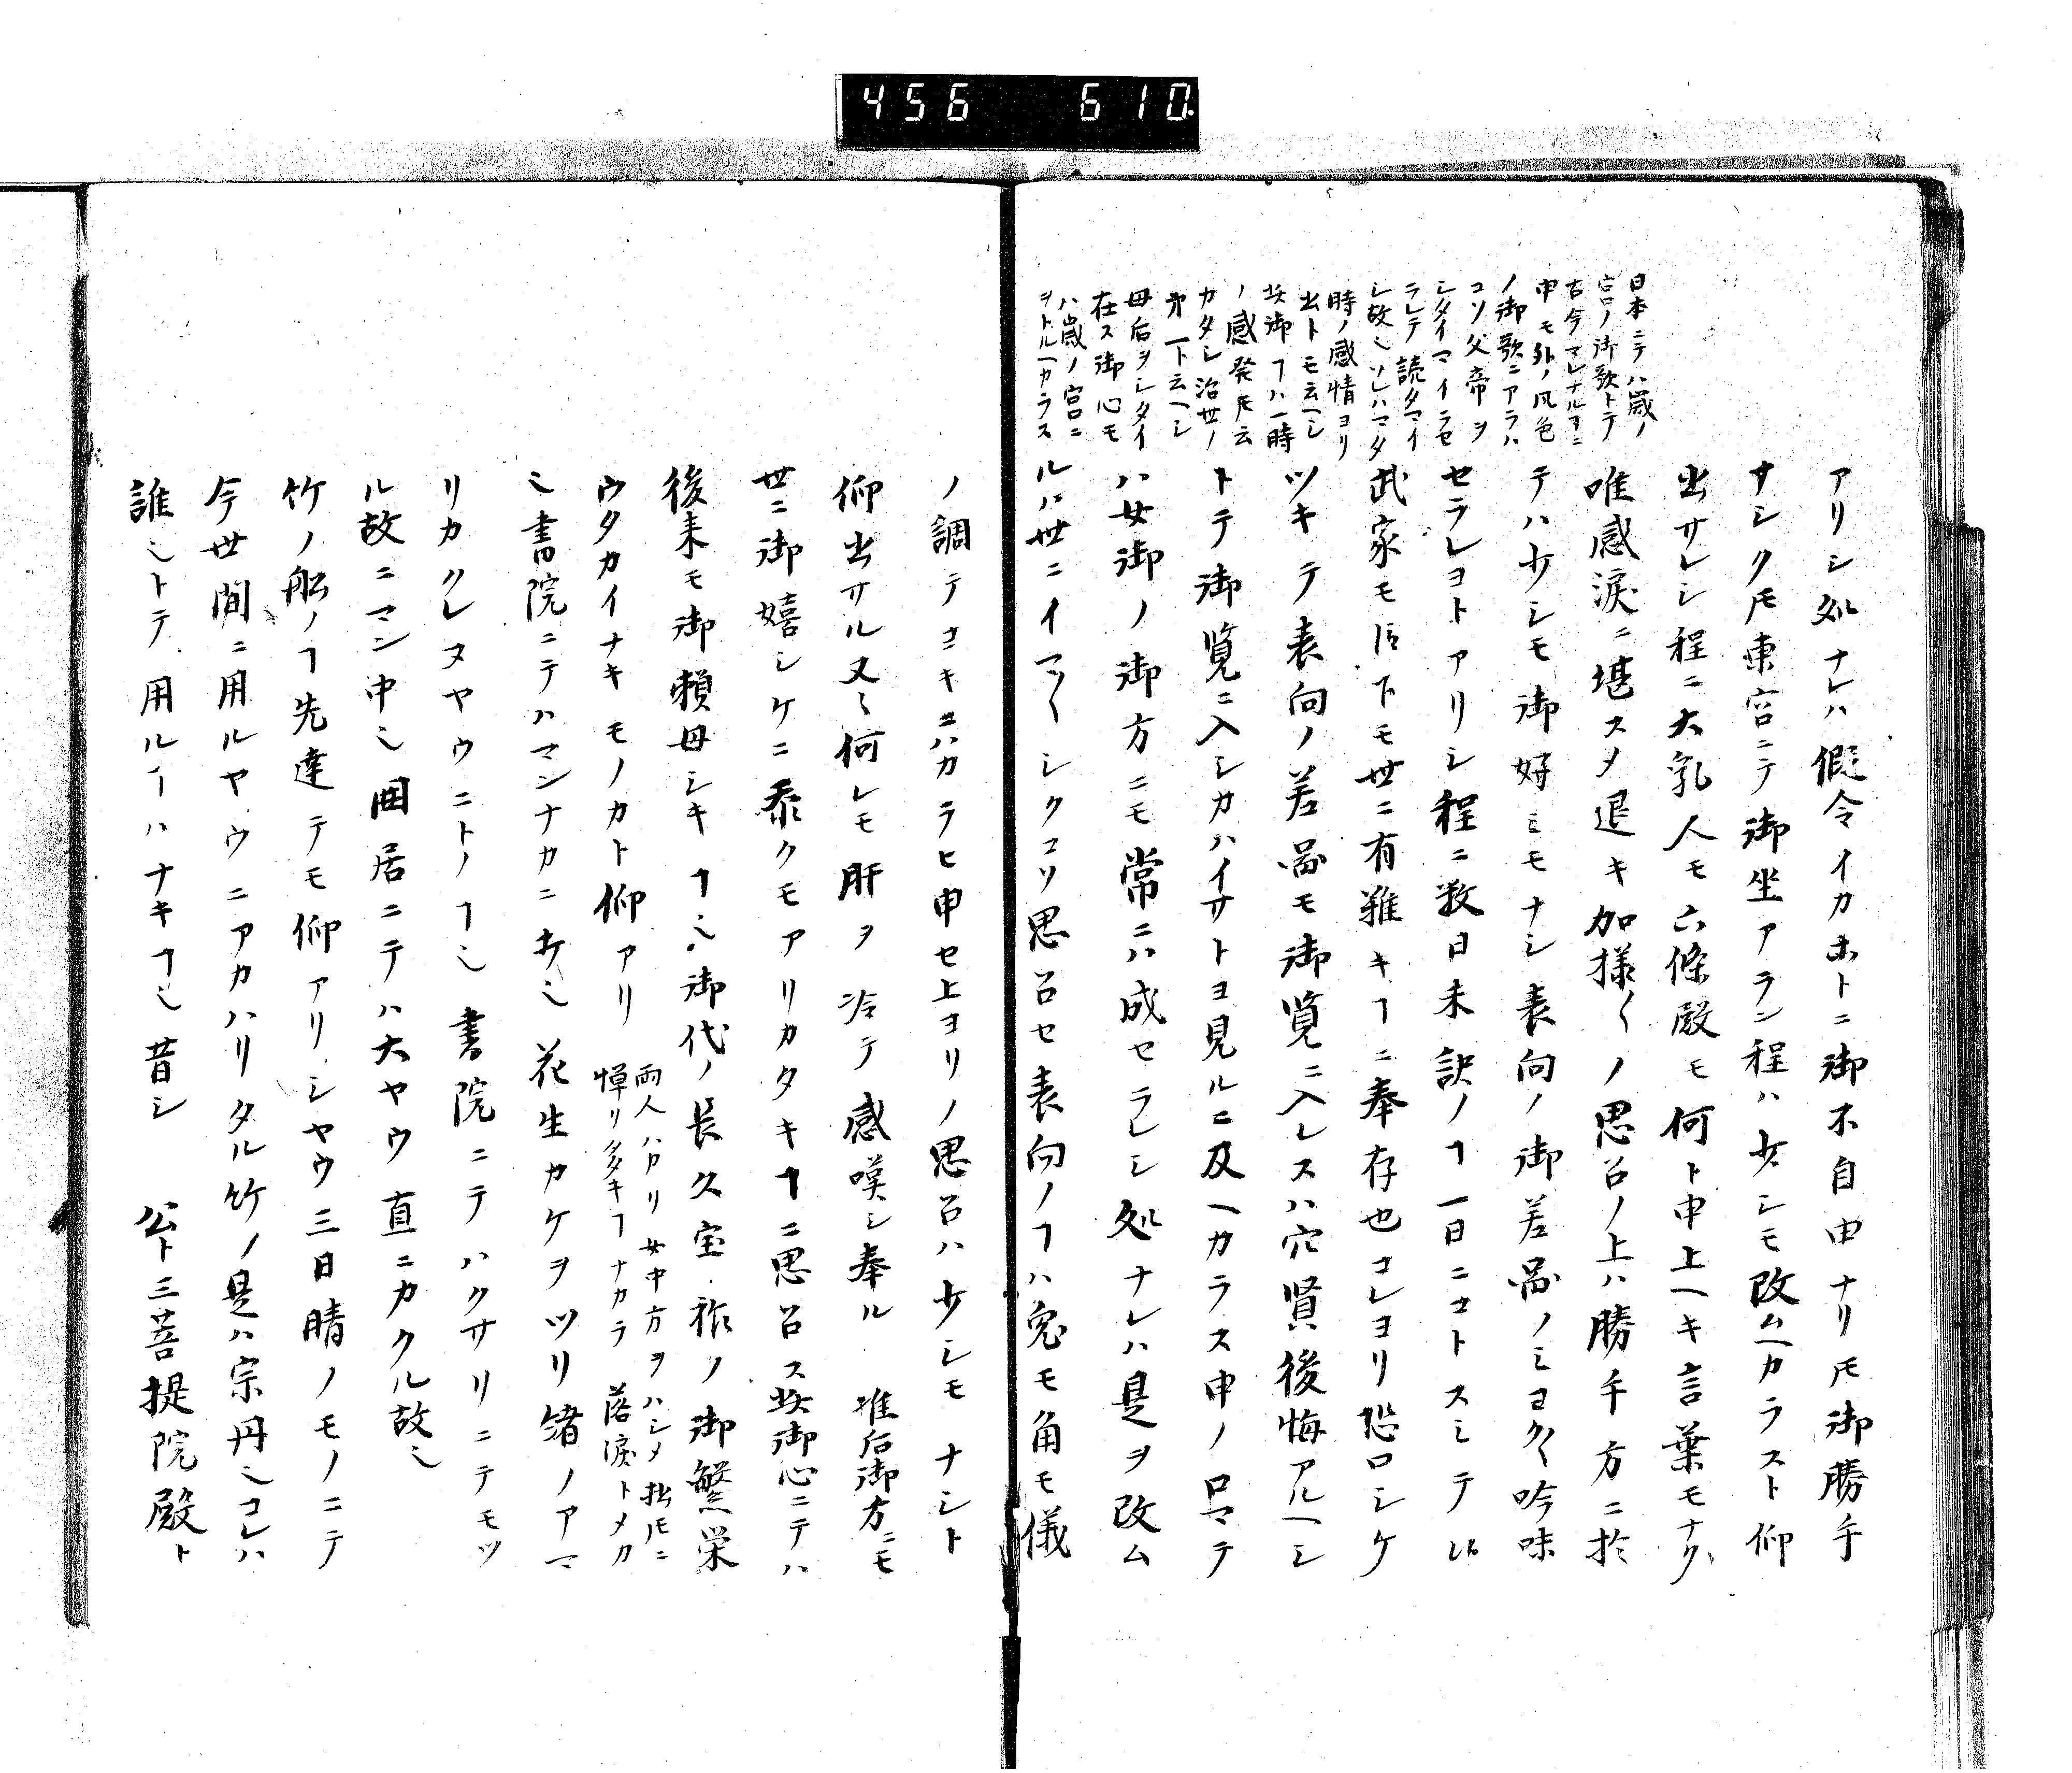 456 610.
日本ニテ八歳ノ
宮ノ御歌トテ
古今マレナルヿニ
申モ外ノ風色
ノ御歌ニアラハ
コソ父帝ヲ
シタイマイラセ
ラレテ読タマイ
シ故ニソレハマタ
時ノ感情ヨリ
出トモ云ヘシ
此御ヿハ一時
ノ感発トモ云
カタシ治世ノ
第一ト云ヘシ
母后ヲシタイ
在ス御心モ
八歳ノ宮ニ
ヲトルヘカラス
アリシ処ナレハ假令イカホトニ御不自由ナリトモ御勝手
サシクトモ東宮ニテ御坐アラン程ハ少シモ改ムヘカラスト仰
出サレシ程ニ大乳人モ六條殿モ何ト申上ヘキ言葉モナク
唯感涙ニ堪スメ退キ加様〱ノ思召ノ上ハ勝手方ニ於
テハ少シモ御好ミモナシ表向ノ御差図ノミヨク〱吟味
セラレヨトアリシ程ニ数日未訣ノヿ一日ニコトスミテ
武家モ臣下モ世ニ有難キヿニ奉存也コレヨリ恐ロシケ
ツキテ表向ノ差図モ御覧ニ入レスハ穴賢後悔アルヘシ
トテ御覧ニ入シカハイサトヨ見ルニ及ヘカラス申ノ口マテ
ハ女御ノ御方ニモ常ニハ成セラレシ処ナレハ是ヲ改ム
ルハ世ニイマ〱シクコソ思召セ表向ノヿハ兎モ角モ儀
ノ調テヨキニハカラヒ申セ上ヨリノ思召ハ少シモナシト
仰出サル又〻何レモ肝ヲ冷テ感嘆シ奉ル 准后御方ニモ
世ニ御嬉シケニ忝クモアリカタキヿニ思召ス此御心ニテハ
後来モ御頼母シキヿ也御代ノ長久宝祚ノ御繁栄
ウタカイナキモノカト仰アリ
両人ハカリ女中方ヲハシメ拙トモニ
憚リ多キヿナカラ落涙トメカ
也書院ニテハマンナカニ打也花生カケヲツリ緒ノアマ
リカクレヌヤウニトノヿ也書院ニテハクサリニテモツ
ル故ニマン中也囲居ニテハ大ヤウ直ニカクル故也
竹ノ船ノヿ先達テモ仰アリシヤウ三日晴ノモノニテ
今世間ニ用ルヤウニアカハリタル竹ノ是ハ宗丹也コレハ
誰也トテ用ルヿハナキヿ也昔シ 公ト三菩提院殿ト